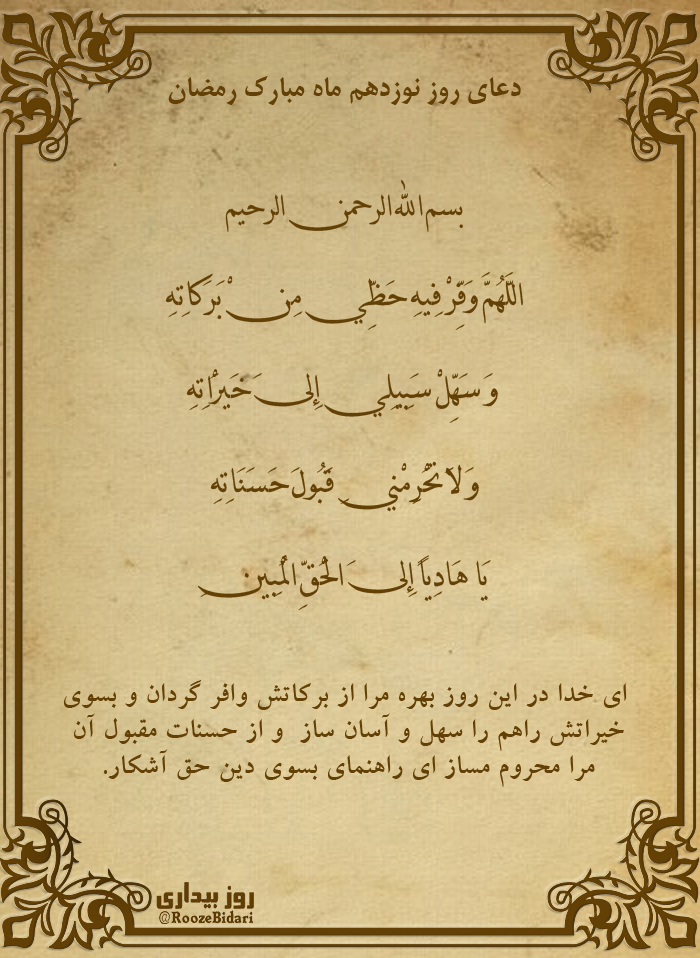 دعای روز نوزدهم ماه مبارک رمضان
بسم الله الرحمن الرحیم
اللَّهُمَّ وَفِّرْ فِيهِ حَظِّي مِنْ بَرَكَاتِهِ
وَ سَهِّلْ سَبِيلِي إِلَى خَيْرَاتِهِ
وَ لَا تَحْرِمْنِي قَبُولَ حَسَنَاتِهِ
يَا هَادِياً إِلَى الْحَقِّ الْمُبِينِ
ای خدا در این روز بهره مرا از برکاتش وافر گردان و بسوی
خیراتش راهم را سهل و آسان ساز و از حسنات مقبول آن
مرا محروم مساز ای راهنمای بسوی دین حق آشکار.
روز بیداری
@RoozeBidari